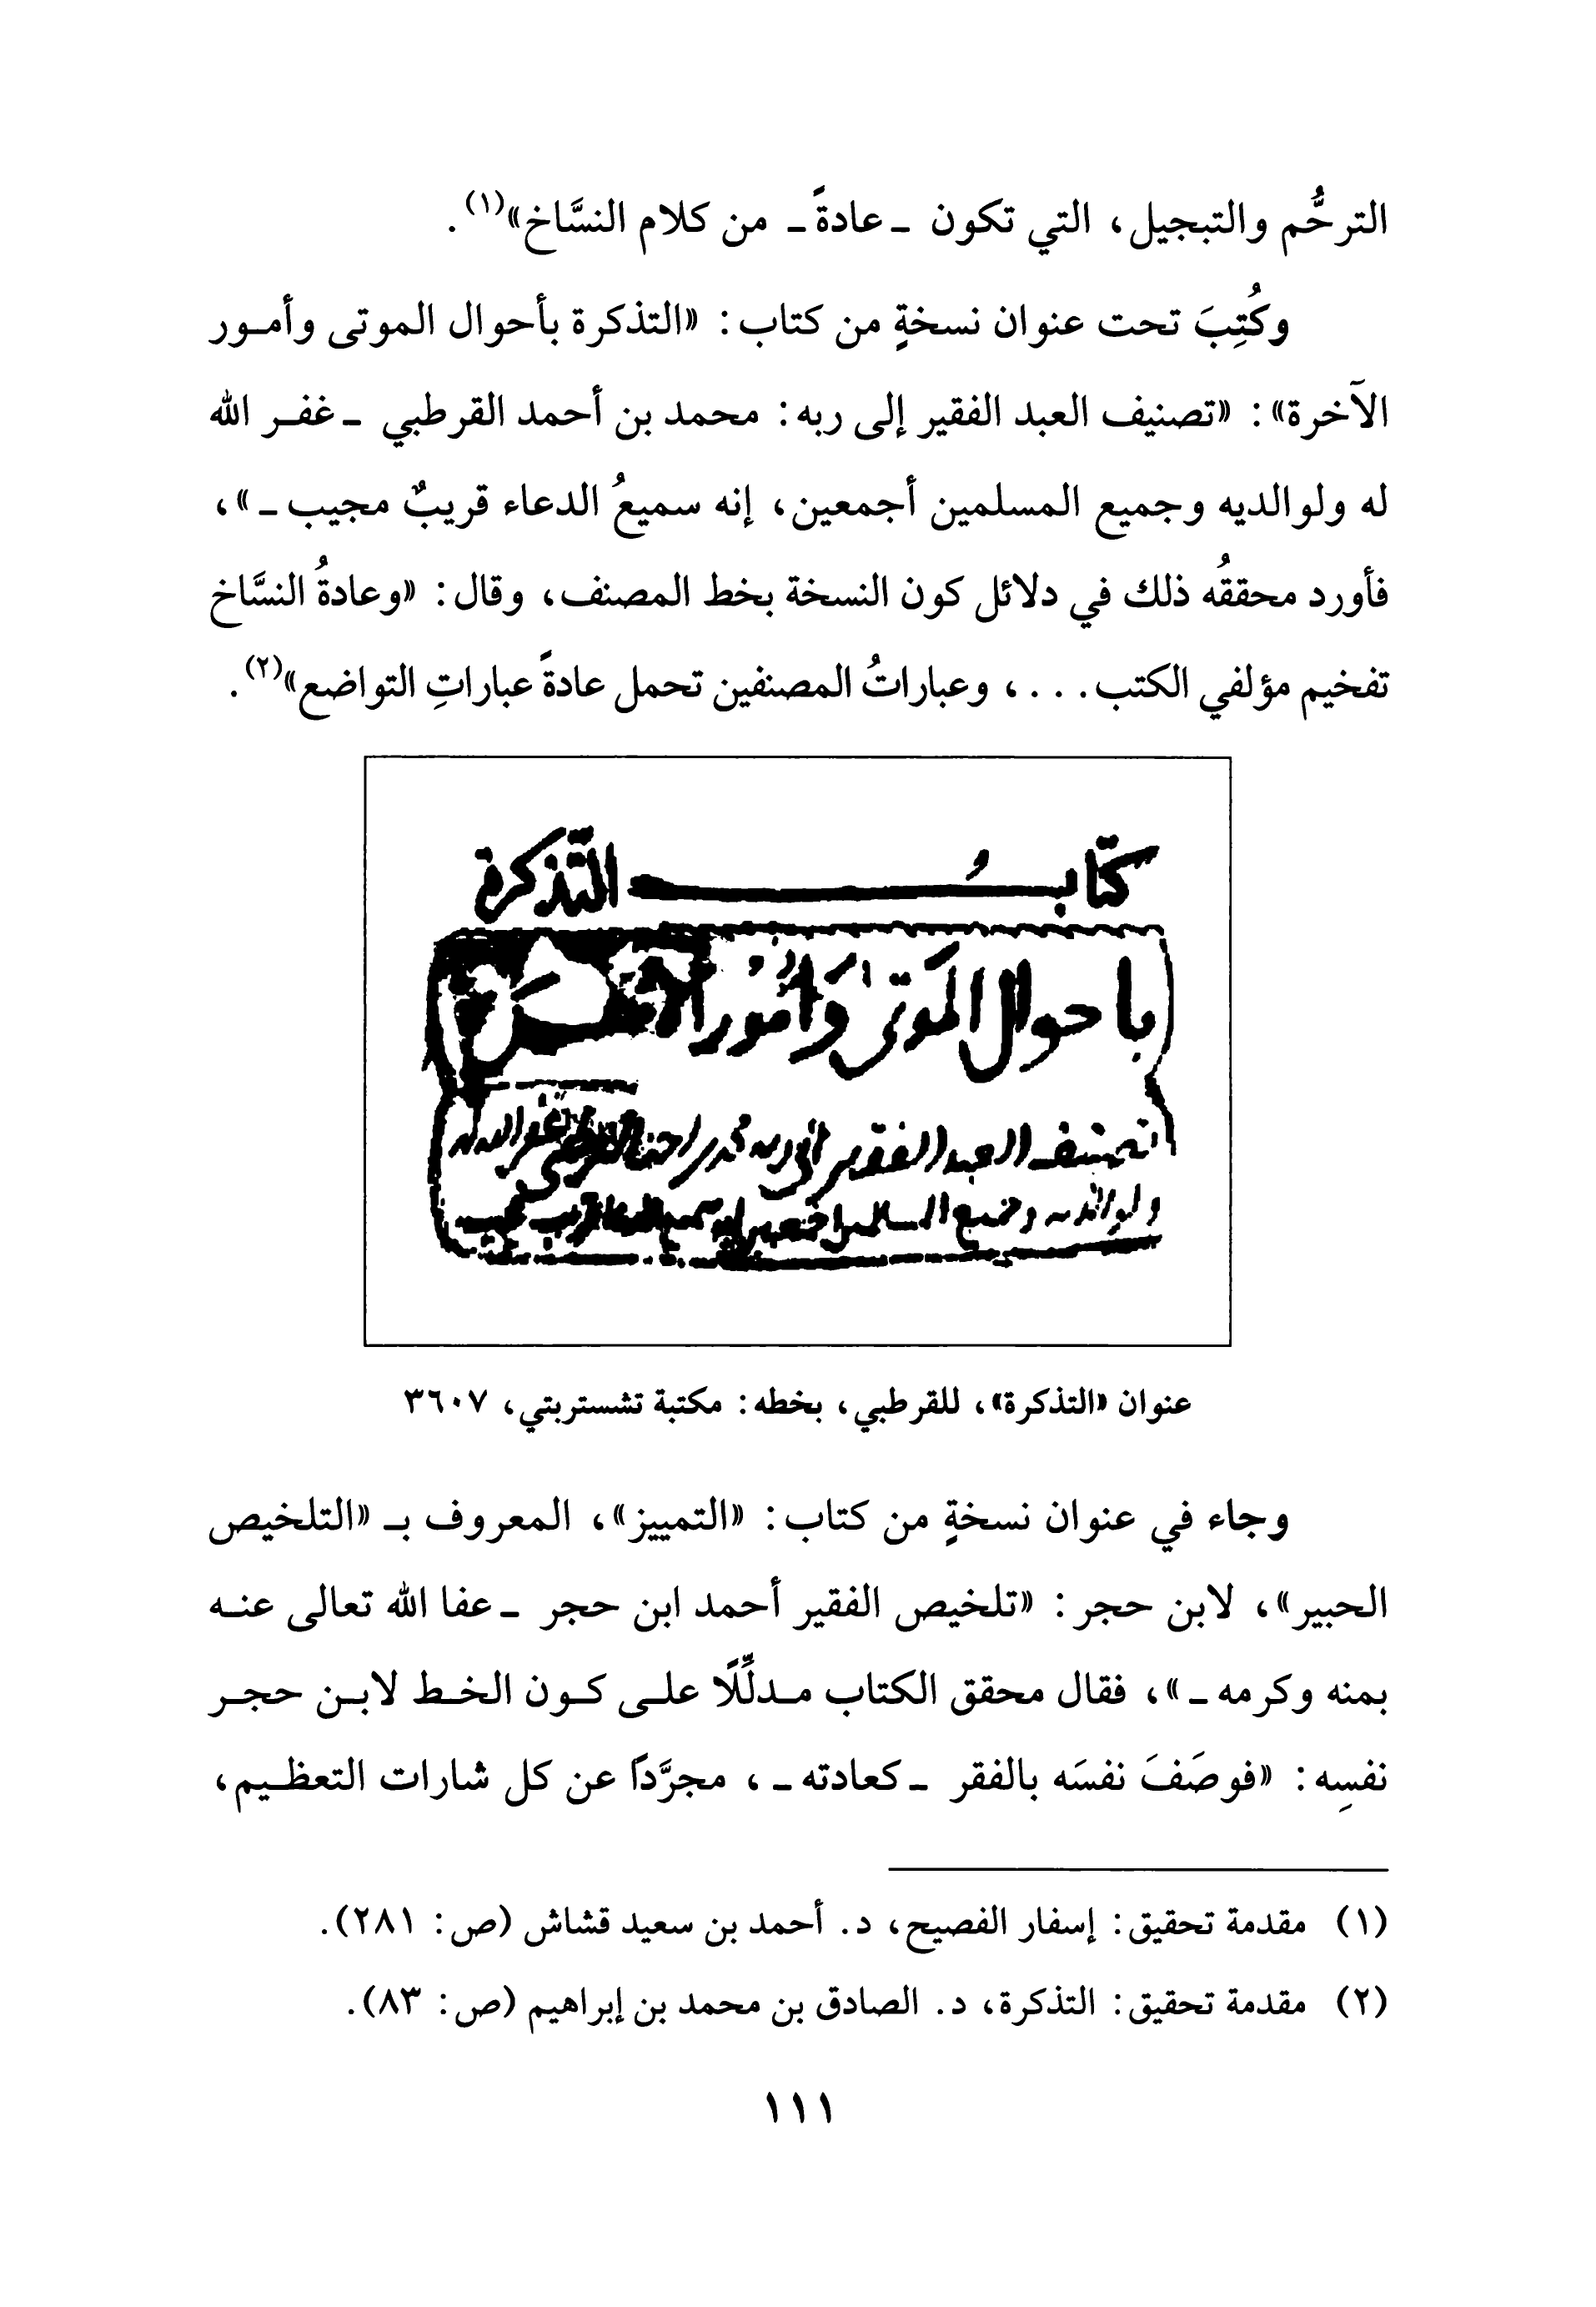 الترحُّم والتبجيل، التي تكون ـ عادةً ـ من كلام النسَّاخ»(١).
وكُتِبَ تحت عنوان نسخةٍ من كتاب: «التذكرة بأحوال الموتى وأمـور
الآخرة»: «تصنيف العبد الفقير إلى ربه: محمد بن أحمد القرطبي ـ غفـر الله
له ولوالديه وجميع المسلمين أجمعين، إنه سميعُ الدعاء قريبٌ مجيب ـ»،
فأورد محققُه ذلك في دلائل كون النسخة بخط المصنف، وقال: «وعادةُ النسَّاخ
تفخيم مؤلفي الكتب. . . ، وعباراتُ المصنفين تحمل عادةً عباراتِ التواضع»(٢).
كتابُ التذكرة
باحوال الموتى وَامُور الاخرة
تصنيف العبد الفقير الى ربه محمد بن احمد القرطبي غفر الله له
ولوالديه وجميع المسلمين اجمعين انه سميع الدعا قريب مجيب
عنوان «التذكرة»، للقرطبي، بخطه: مكتبة تشستربتي، ٣٦٠٧
وجاء في عنوان نسخةٍ من كتاب: «التمييز»، المعروف بـ «التلخيص
الحبير»، لابن حجر: «تلخيص الفقير أحمد ابن حجر ـ عفا الله تعالى عنـه
بمنه وكرمه ـ»، فقال محقق الكتاب مـدلِّلًا علـى كـون الخـط لابـن حجـر
نفسِه: «فوصَفَ نفسَه بالفقر ـ كعادته ـ، مجرَّداً عن كل شارات التعظـيم،
(١) مقدمة تحقيق: إسفار الفصيح، د. أحمد بن سعيد قشاش (ص: ٢٨١).
(٢) مقدمة تحقيق: التذكرة، د. الصادق بن محمد بن إبراهيم (ص: ٨٣).
١١١